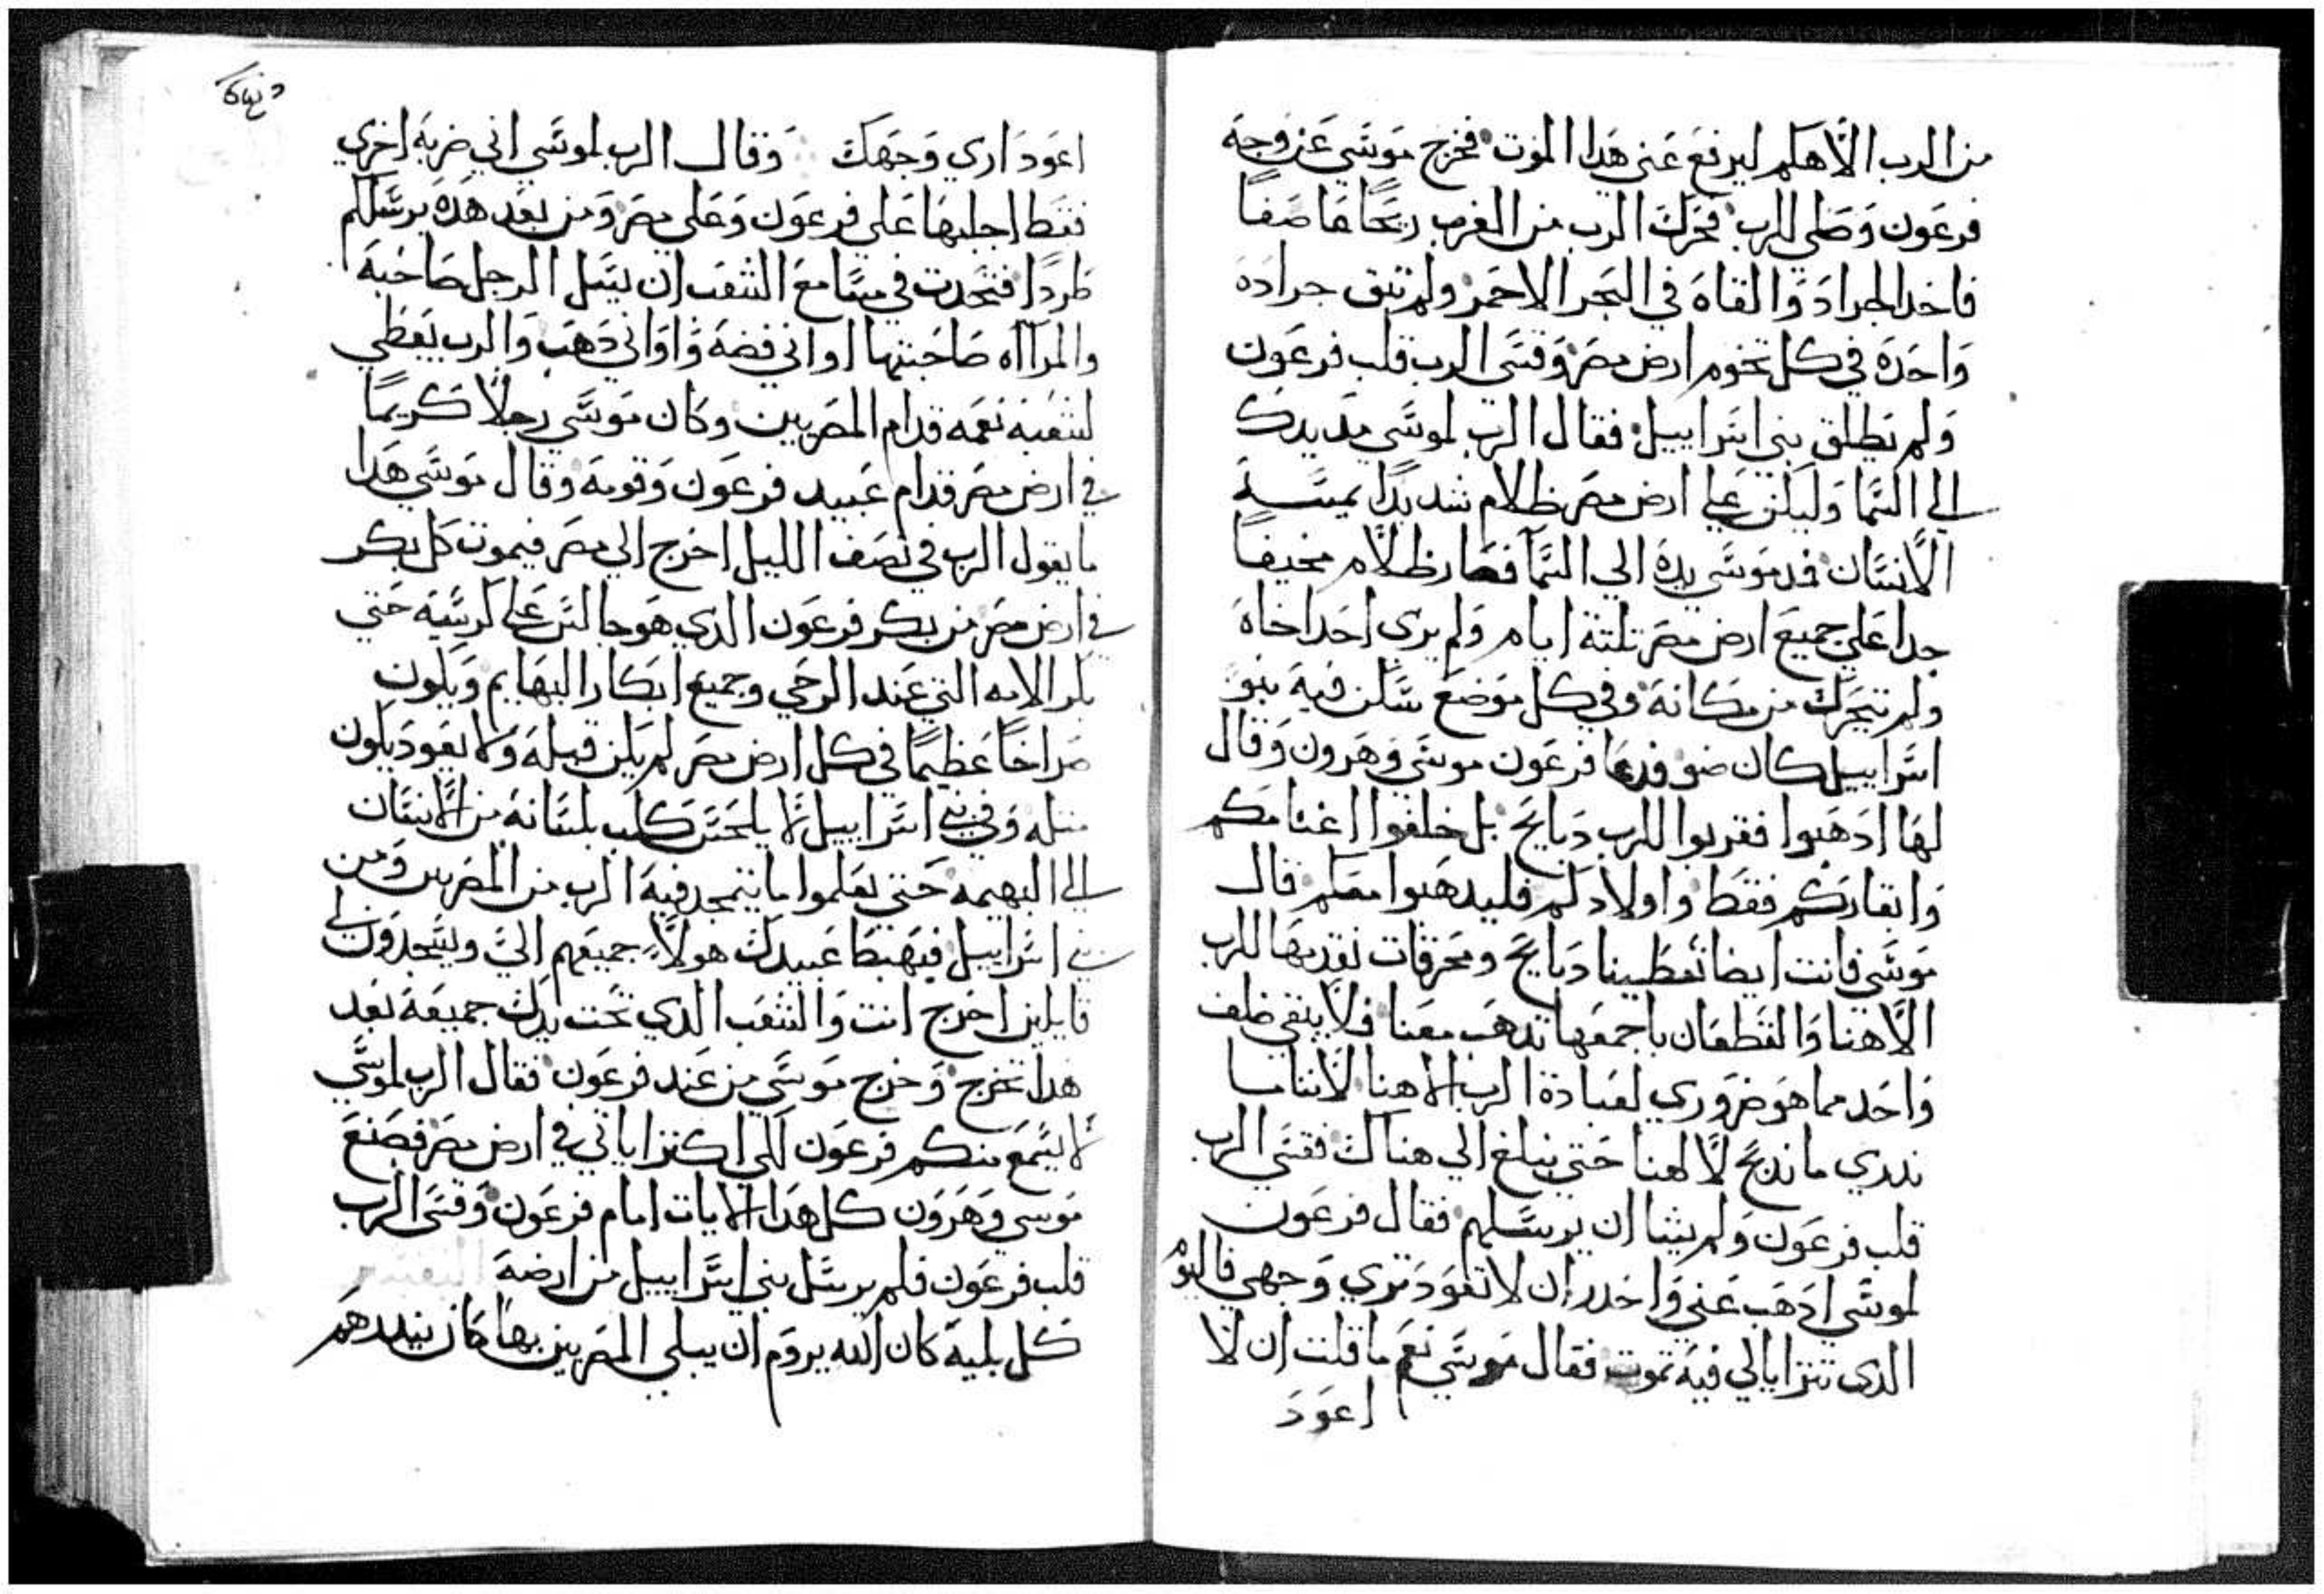 من الرب الاهكم ليرفع عني هدا الموت فخرج موسي عن وجه
فرعون وصلي للرب فحرك الرب من الغرب ريحًا عاصفًا
فاخد الجراد والقاه في البحر الاحمر ولم تبق جرادة
واحدة في كل تخوم ارض مصر وقسي الرب قلب فرعون
ولم يطلق بني اسراييل فقال الرب لموسي مد يدك
الي السما وليكن علي ارض مصر ظلام شديدًا يمسه
الانسان فمد موسي يده الي السما فصار ظلام مخيفًا
جدا علي جميع ارض مصر تلتة ايام ولم يري احد اخاه
ولم يتحرك من مكانه وفي كل موضع سكن فيه بنو
اسراييل كان ضو فدعا فرعون موسي وهرون وقال
لهما ادهبوا فقربوا للرب دبايح بل خلفوا اغنامكم
وابقاركم فقط واولادكم فليدهبوا معكم قال
موسي فانت ايضا تعطينا دبايح ومحرقات نقدمها للرب
الاهنا والقطعان باجمعها تدهب معنا فلا يبقي ظلف
واحد مما هو ضروري لعبادة الرب الاهنا لاننا ما
ندري ما ندبح لالهنا حتي نبلغ الي هناك فقسي الرب
قلب فرعون ولم يشا ان يرسلهم فقال فرعون
لموسي ادهب عني واحدر ان لا تعود تري وجهي فاليوم
الدي تترايا لي فيه تموت فقال موسي نعم ما قلت ان لا
اعود
اعود اري وجهك وقال الرب لموسي اني ضربة اخري
فقط اجلبها علي فرعون وعلي مصر ومن بعد هده يرسلكم
طردًا فتحدت في مسامع الشعب ان يسل الرجل صاحبه
والمرااه صاحبتها اواني فضة واواني دهب والرب يعطي
لشعبه نعمه قدام المصريين وكان موسي رجلًا كريمًا
في ارض مصر قدام عبيد فرعون وقومه وقال موسي هدا
ما يقول الرب في نصف الليل اخرج الي مصر فيموت كل بكر
في ارض مصر من بكر فرعون الدي هو جالس علي كرسيه حتي
بكر الامه التي عند الرحي وجميع ابكار البهايم ويكون
صراخًا عظيمًا في كل ارض مصر لم يكن قبله ولا يعود يكون
متله وفي بني اسراييل لا يلحس كلب بلسانه من الانسان
الي البهيمه حتي تعلموا ما يتمجد فيه الرب من المصريين ومن
بني اسراييل فيهبط عبيدك هولاء جميعهم الي ويسجدون لي
قايلين اخرج انت والشعب الدي تحت يدك جميعه بعد
هدا تخرج وخرج موسي من عند فرعون فقال الرب لموسي
لا يسمع منكم فرعون لكي اكتر اياتي في ارض مصر فصنع
موسي وهرون كل هدا الايات امام فرعون وقسي الرب
قلب فرعون فلم يرسل بني اسراييل من ارضه
كل بلية كان الله يروم ان يبلي المصريين بها كان ينددهم